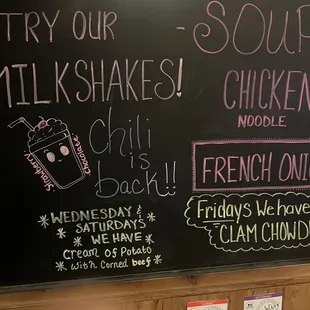 TRY OUR
MILKSHAKES!
Strawberry
Chocolate
Chili
is
back!!
*WEDNESDAY &
SATURDAYS *
* WE HAVE *
Cream of Potato
* with Corned beef *
-SOUP
CHICKEN
NOODLE
FRENCH ONI
Fridays We have
CLAM CHOWD